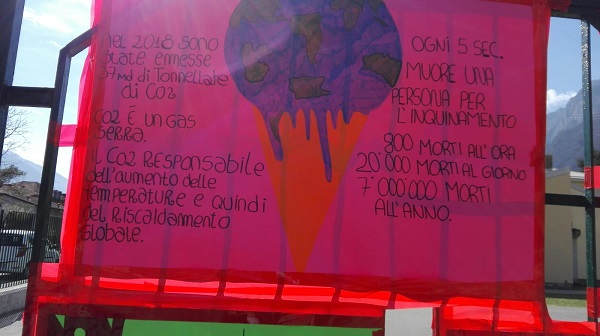 nel 2018 sono
state emesse
37 Md di Tonnellate
di CO2
CO2 É UN GAS
SERRA.
il CO2 RESPONSABILE
dell'aumento delle
temperature e quindi
del Riscaldamento
Globale.
OGNI 5 SEC.
MUORE UNA
PERSONA PER
L'INQUINAMENTO
800 MORTI ALL'ORA
20'000 MORTI AL GIORNO
7'000'000 MORTI
ALL'ANNO.